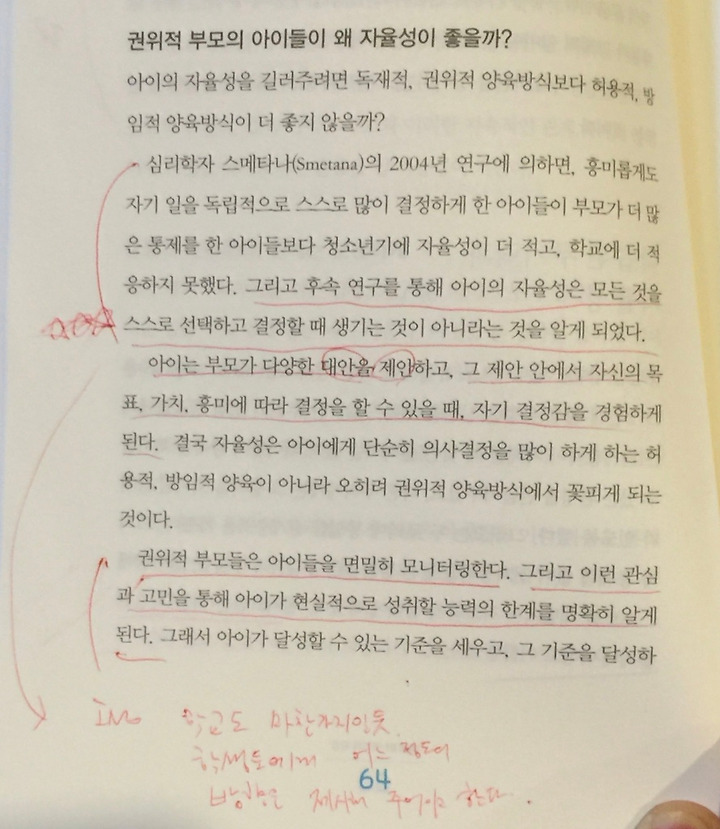 권위적 부모의 아이들이 왜 자율성이 좋을까?
아이의 자율성을 길러주려면 독재적, 권위적 양육방식보다 허용적, 방
임적 양육방식이 더 좋지 않을까?
심리학자 스메타나(Smetana)의 2004년 연구에 의하면, 흥미롭게도
자기 일을 독립적으로 스스로 많이 결정하게 한 아이들이 부모가 더 많
은 통제를 한 아이들보다 청소년기에 자율성이 더 적고, 학교에 더 적
응하지 못했다. 그리고 후속 연구를 통해 아이의 자율성은 모든 것을
스스로 선택하고 결정할 때 생기는 것이 아니라는 것을 알게 되었다.
아이는 부모가 다양한 대안을 제안하고, 그 제안 안에서 자신의 목
표, 가치, 흥미에 따라 결정을 할 수 있을 때, 자기 결정감을 경험하게
된다. 결국 자율성은 아이에게 단순히 의사결정을 많이 하게 하는 허
용적, 방임적 양육이 아니라 오히려 권위적 양육방식에서 꽃피게 되는
것이다.
권위적 부모들은 아이들을 면밀히 모니터링한다. 그리고 이런 관심
과 고민을 통해 아이가 현실적으로 성취할 능력의 한계를 명확히 알게
된다. 그래서 아이가 달성할 수 있는 기준을 세우고, 그 기준을 달성하
학교도 마찬가지일듯
학생들에게 어느 정도의
64
방향은 제시해 주어야 한다.